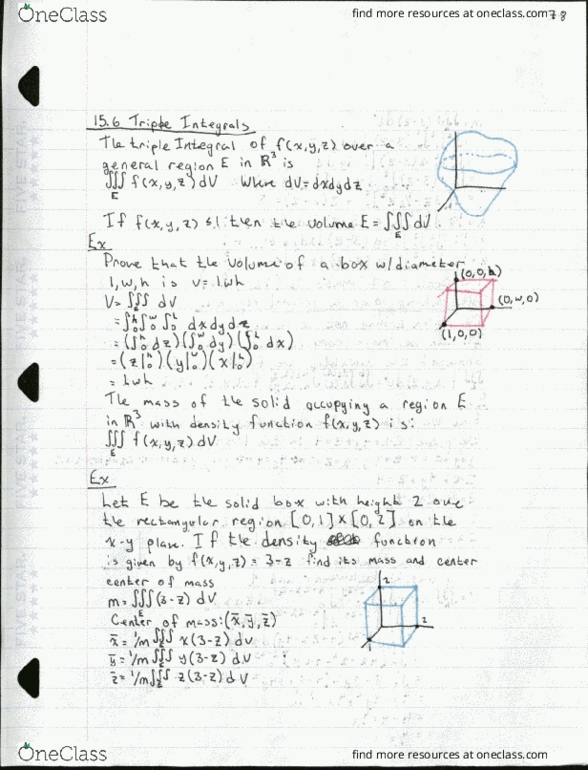 OneClass
find more resources at oneclass.com
78
15.6 Triple Integrals
The triple Integral of f(x,y,z) over a
general region E in R³ is
∭ f(x,y,z) dV where dV=dxdydz
E
If f(x,y,z) ≤ 1 then the volume E = ∭ dV
E
Ex
Prove that the volume of a box w/diameter
l,w,h is v=lwh
(0,0,h)
(0,w,0)
(1,0,0)
V=∭ dV
E
=∫₀ʰ∫₀ʷ∫₀ᴸ dxdydz
=(∫₀ʰ dz)(∫₀ʷ dy)(∫₀ᴸ dx)
=(z|₀ʰ)(y|₀ʷ)(x|₀ᴸ)
= lwh
The mass of the solid occupying a region E
in R³ with density function f(x,y,z) is:
∭ f(x,y,z) dV
E
Ex
Let E be the solid box with height 2 over
the rectangular region [0,1]x[0,2] on the
x-y plane. If the density function
is given by f(x,y,z) = 3-z find its mass and center
center of mass
m=∭(3-z) dV
E
Center of mass:(x̄,ȳ,z̄)
x̄=1/m∭ x(3-z) dV
E
ȳ=1/m∭ y(3-z) dV
E
z̄=1/m∭ z(3-z) dV
E
2
2
1
FIVE STAR.
FIVE STAR.
FIVE STAR.
FIVE STAR.
OneClass
find more resources at oneclass.com